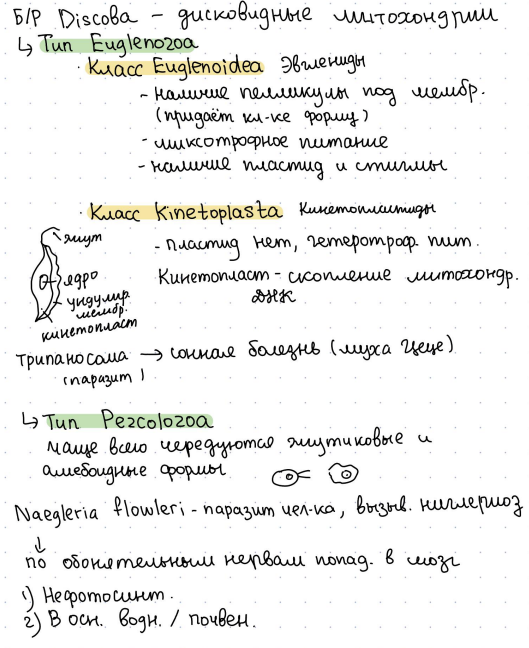 Б/Р Discoba - дисковидные митохондрии
↳ Тип Euglenozoa
· Класс Euglenoidea Эвглениды
- наличие пелликулы под мембр.
(придаёт кл-ке форму)
- миксотрофное питание
- наличие пластид и стигмы
· Класс Kinetoplasta Кинетопластиды
жгут
- пластид нет, гетеротроф. пит.
ядро
Кинетопласт - скопление митохондр.
ДНК
ундулир.
мембр.
кинетопласт
трипаносома → сонная болезнь (муха Цеце)
(паразит)
↳ Тип Percolozoa
чаще всего чередуются жгутиковые и
амебоидные формы
Naegleria flowleri - паразит чел-ка, вызыв. ниглериоз
↓
по обонятельным нервам попад. в мозг
1) Нефотосинт.
2) В осн. водн. / почвен.